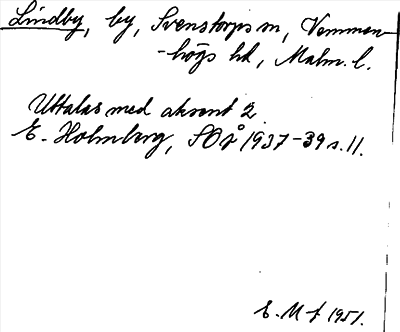 Lindby, by, Svenstorps sn, Vemmen-
högs hd, Malm. l.
Uttalas med aksent 2
E. Holmberg, SOÅ 1937-39 s. 11.
E. M-f 1951.